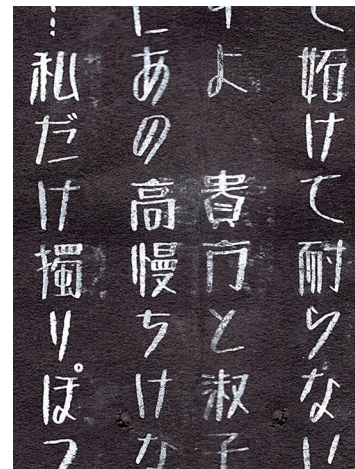 て妬けて耐らない
すよ　貴方と淑子
にあの高慢ちけな
…私だけ獨りぽつ